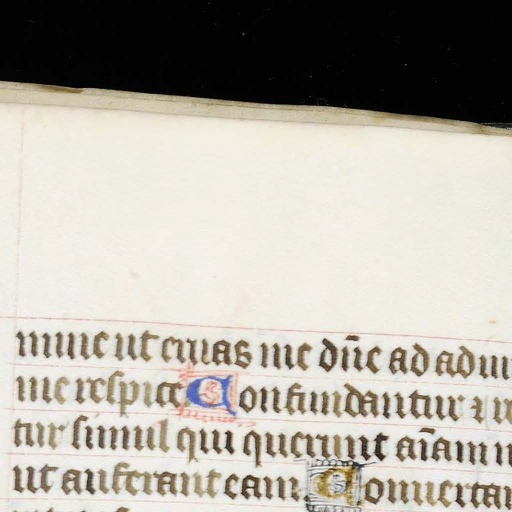 mine ut eruas me dn̄e ad adiu
me respice Confundantur ⁊ re
tur simul qui querunt aīam m
ut auferant eam. Conuertan